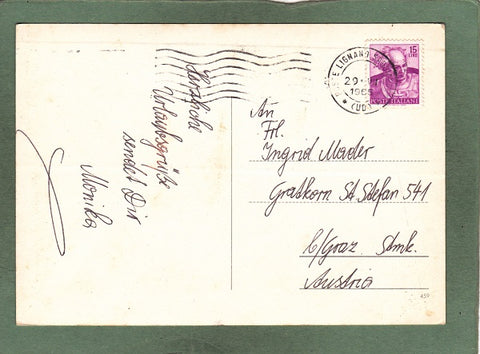 Herzliche
Urlaubsgrüße
sendet Dir
Monika
15
LIRE
POSTE ITALIANE
LIGNANO
29
196
(UD)
An
Frl.
Ingrid Mader
Gratkorn St Stefan 541
b/Graz Stmk.
Austria
459